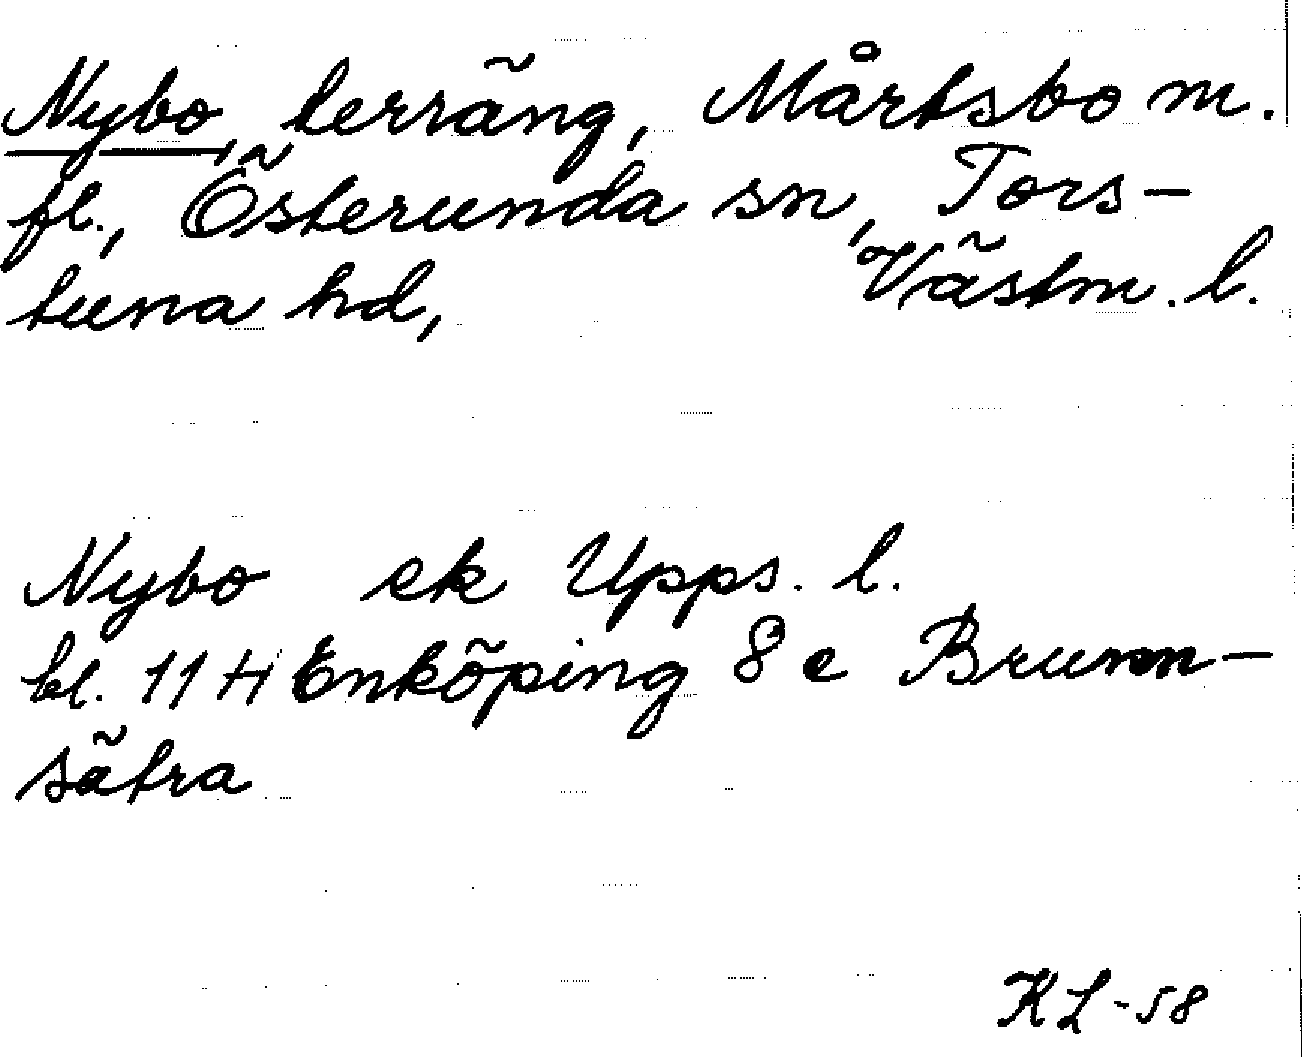 Nybo, terräng, Mårtsbo m.
fl., Österunda sn, Tors-
tuna hd, Västm. l.
Nybo ek Upps. l.
bl. 11 H Enköping 8 e Brunn-
sätra
KL-58